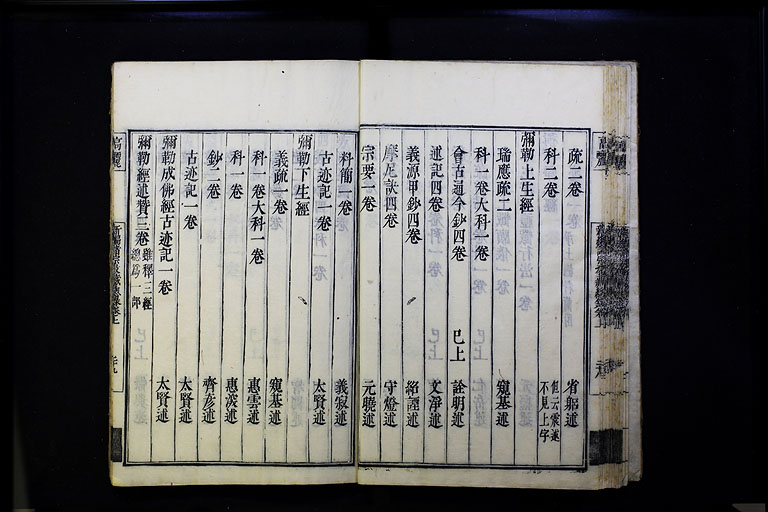 疏二卷 省躬述
科二卷 但云震述不見上字
彌勒上生經
瑞應疏二 窺基述
科一卷大科一卷
會古通今鈔四卷 已上 詮明述
述記四卷 文淨述
義源甲鈔四卷
守燈述
宗要一卷 元曉述
料簡一卷 義寂述
古迹記一卷 太賢述
彌勒下生經
義疏一卷 窺基述
科一卷大科一卷 惠雲述
科一卷
鈔二卷 齊彥述
古迹記一卷 太賢述
彌勒成佛經古迹記一卷 太賢述
彌勒經述贊三卷 雖釋三經總爲一部